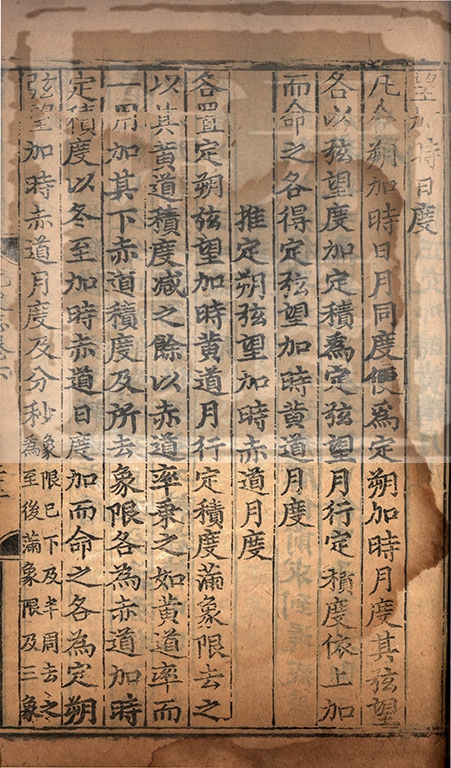 望加時日度
凡合朔加時日月同度便爲定朔加時月度其弦望
各以弦望度加定積爲定弦望月行定積度依上加
而命之各得定弦望加時黃道月度
推定朔弦望加時赤道月度
各置定朔弦望加時黃道月行定積度滿象限去之
以其黃道積度減之餘以赤道率乘之如黃道率而
一用加其下赤道積度及所去象限各為赤道加時
定積度以冬至加時赤道日度加而命之各為定朔
弦望加時赤道月度及分秒象限已下及半周去之
為至後滿象限及三象